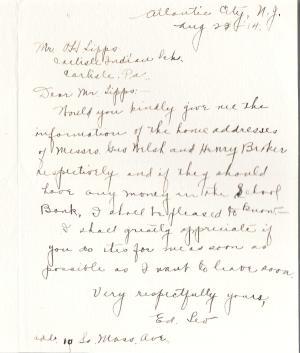 Atlantic City, N.J.
Aug 28 - 14.
Mr. O H Lipps
Carlisle Indian Sch.
Carlisle, Pa
Dear Mr Lipps:-
Would you kindly give me the
information of the home addresses
of Messrs. Geo Welsh and Henry Broker
respectively and if they should
have any money in the School
Bank, I shall be pleased to know -
I shall greatly appreciate if
you do this for me as soon as
possible as I want to leave soon.
Very respectfully yours,
Ed.
add. 10 So. Mass. Ave.